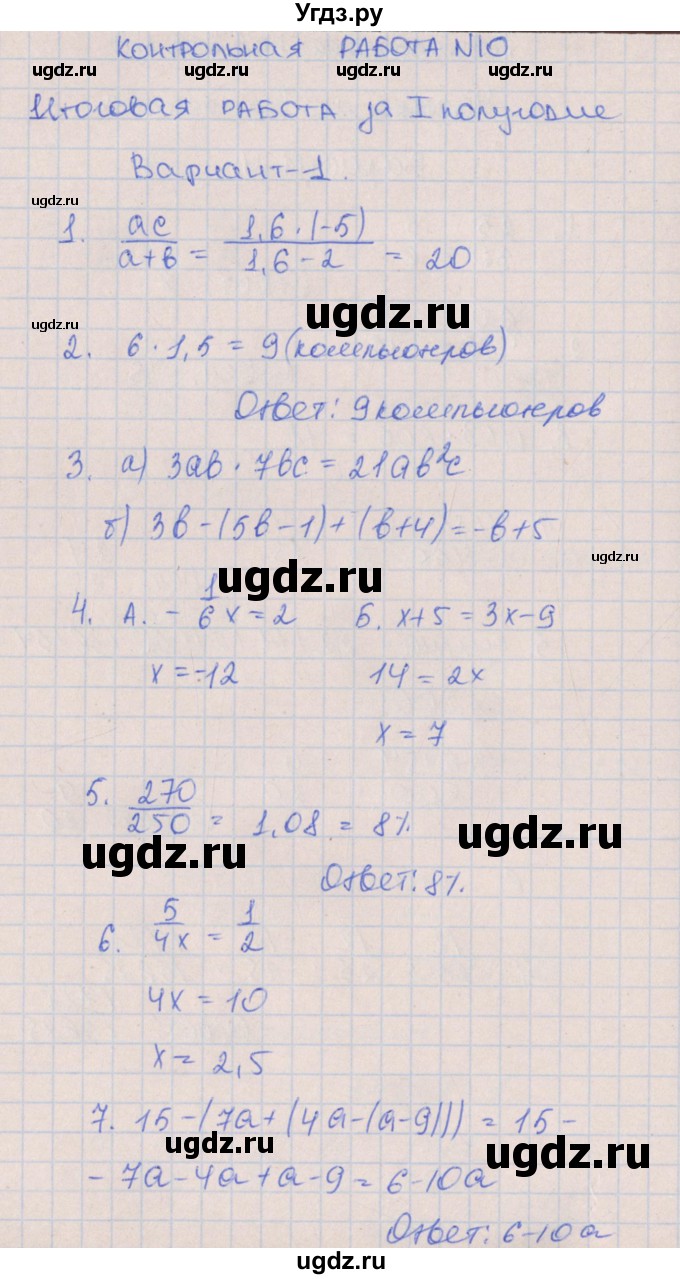 Угдз.ру
Контрольная РАБОТА N10
ugdz.ru ugdz.ru ugdz.ru ugdz.ru
Итоговая РАБОТА за I полугодие
Вариант-1.
ugdz.ru
1. ac/(a+в) = (1,6·(-5))/(1,6-2) = 20
ugdz.ru
ugdz.ru
2. 6·1,5 = 9 (компьютеров)
Ответ: 9 компьютеров
3. а) 3ав·7вс = 21ав²с
б) 3в-(5в-1)+(в+4)=-в+5
ugdz.ru
ugdz.ru
4. А. -1/6 x = 2 Б. x+5 = 3x-9
x = -12 14 = 2x
x = 7
5. 270/250 = 1,08 = 8%.
ugdz.ru
ugdz.ru
Ответ: 8%.
6. 5/4x = 1/2
4x = 10
x = 2,5
7. 15-(7а+(4а-(а-9))) = 15-
ugdz.ru ugdz.ru
-7а-4а+а-9 = 6-10а
Ответ: 6-10а
ugdz.ru ugdz.ru ugdz.ru ugdz.ru
ugdz.ru